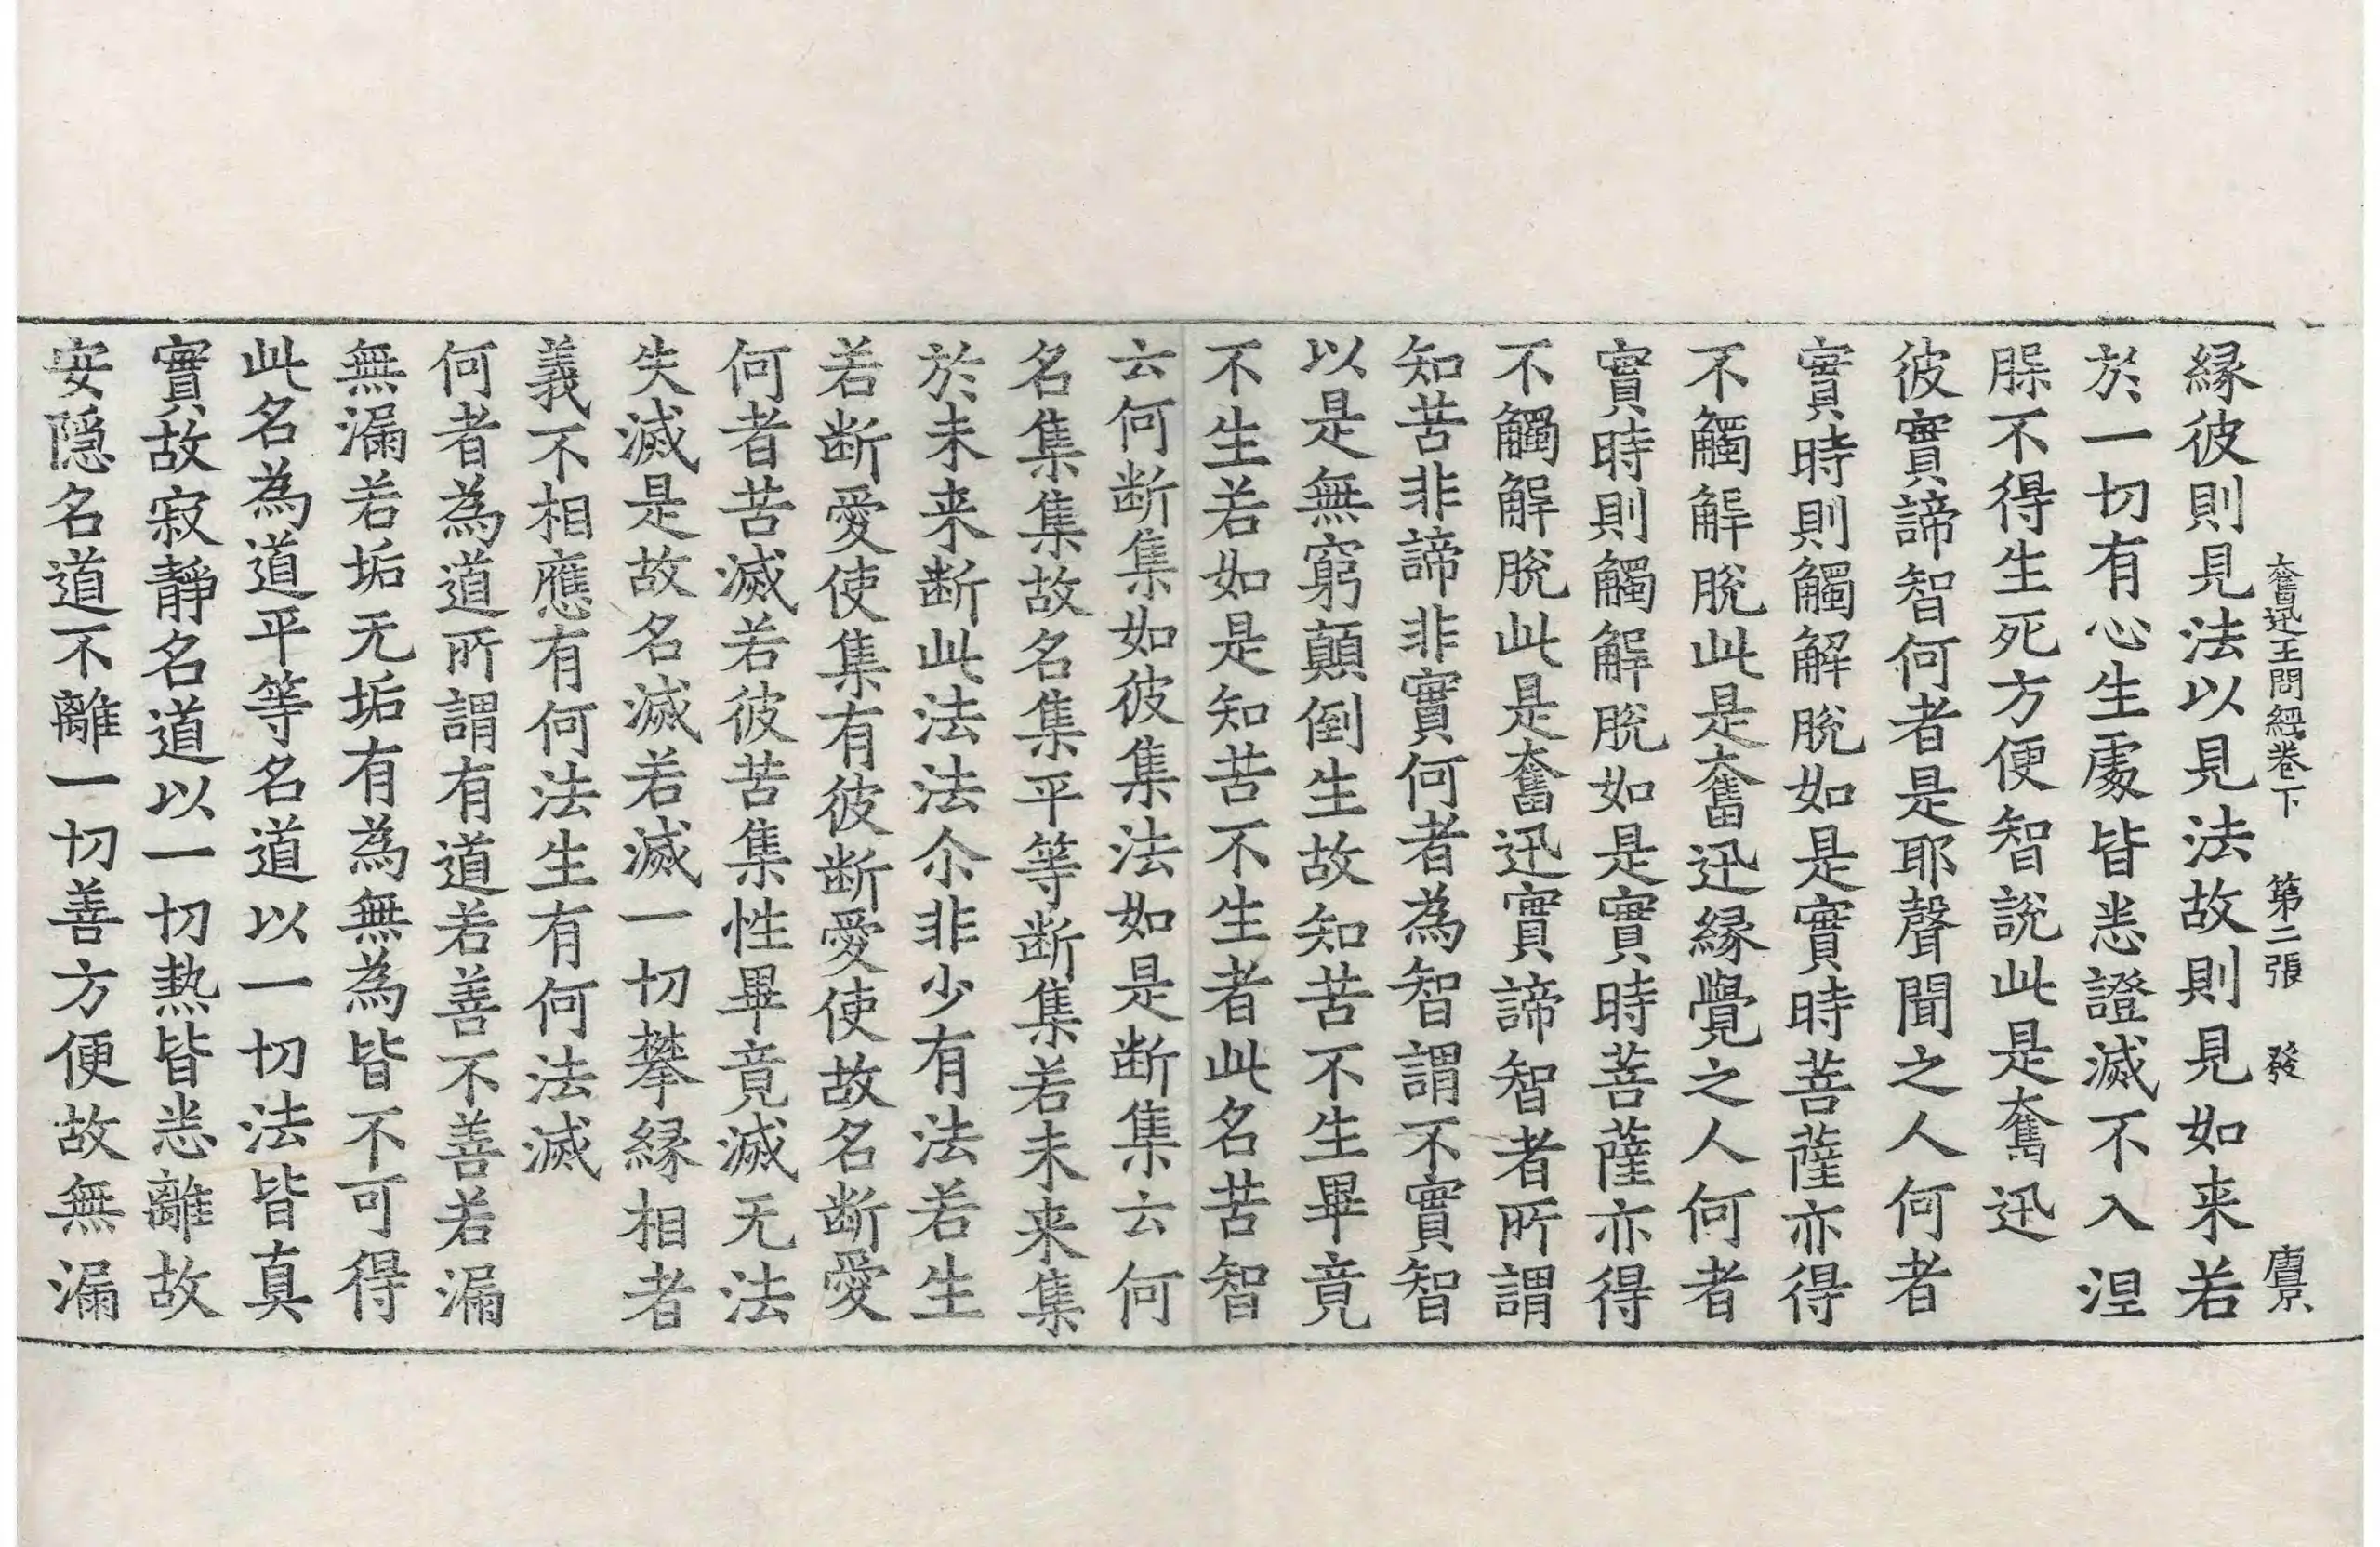 奮迅王問經卷下　第二張　發　唐景
縁彼則見法以見法故則見如来若
於一切有心生處皆悉證滅不入涅
脲不得生死方便智説此是奮迅
彼實諦智何者是耶聲聞之人何者
實時則觸解脫如是實時菩薩亦得
不觸解脫此是奮迅縁覺之人何者
實時則觸解脫如是實時菩薩亦得
不觸解脫此是奮迅實諦智者所謂
知苦非諦非實何者為智謂不實智
以是無窮顛倒生故知苦不生畢竟
不生若如是知苦不生者此名苦智
云何断集如彼集法如是断集云何
名集集故名集平等断集若未来集
於未来断此法法尒非少有法若生
若断愛使集有彼断愛使故名断愛
何者苦滅若彼苦集性畢竟滅无法
失滅是故名滅若滅一切攀縁相者
義不相應有何法生有何法滅
何者為道所謂有道若善不善若漏
無漏若垢无垢有為無為皆不可得
此名為道平等名道以一切法皆真
實故寂靜名道以一切熱皆悉離故
安隱名道不離一切善方便故無漏